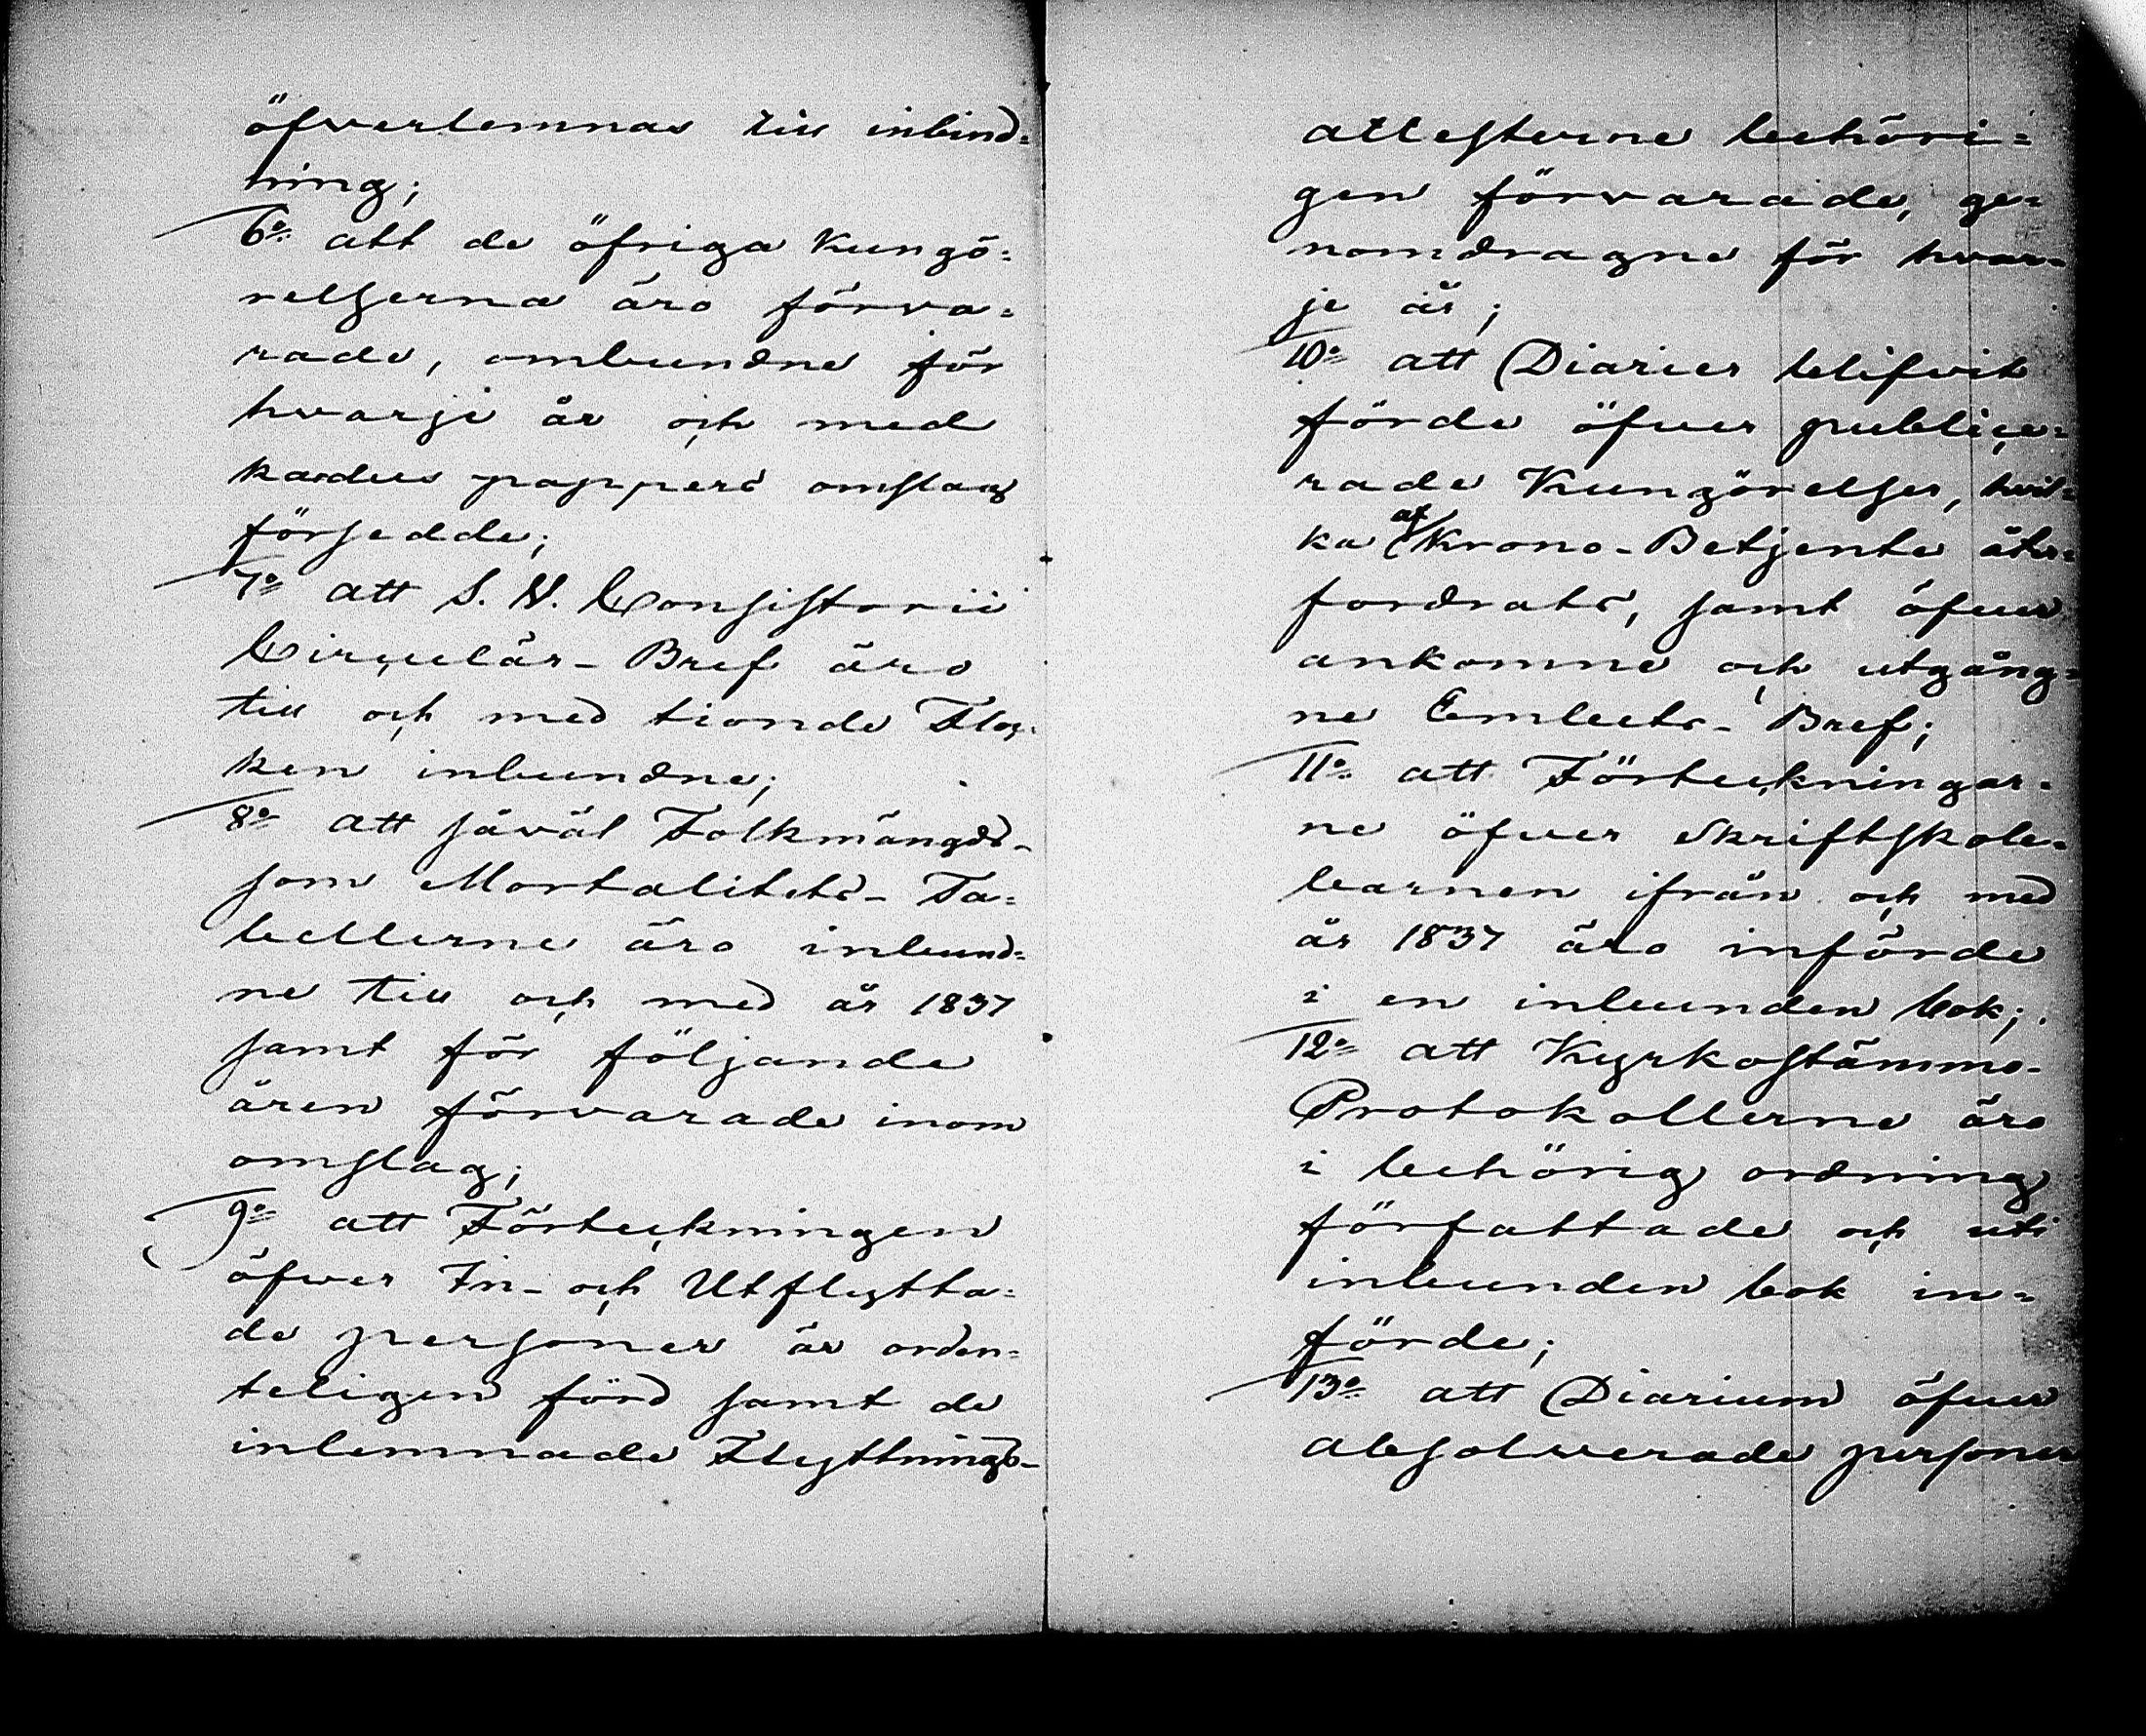 öfverlemnas till inbind=
ning;
6o att de öfriga Kungö=
relserna äro förva=
rade, ombundne för
hvarje år och med
kardus pappers omslag
försedde;
7o att S. W. Consistorii
Circulär-Bref äro
till och med tionde Floc=
ken inbundne;
8o att såväl Folkmängds-
som Mortalitets-Ta=
bellerne äro inbund=
ne till och med år 1837
samt för följande
åren förvarade inom
omslag;
9o att Förteckningen
öfwer In- och Utflytta=
de personer är orden=
teligen förd samt de
inlemnade Flyttnings-
attesterne behöri=
gen förvarade, ge=
nomdragne för hvar=
je år;
10o att Diarier blifvit
förde öfver publice=
rade Kungörelser, hvil=
ka af Krono-Betjente åter=
fordrats, samt öfver
ankomne och utgång=
ne Embets-Bref;
11o att Förteckningar=
ne öfver Skriftskole=
barnen ifrån och med
år 1837 äro införde
i en inbunden bok;
12o att Kyrkostämmo-
Protokollerne äro
i behörig ordning
författade och uti
inbunden bok in=
förde;
13o att Diarium öfver
absolverade personer